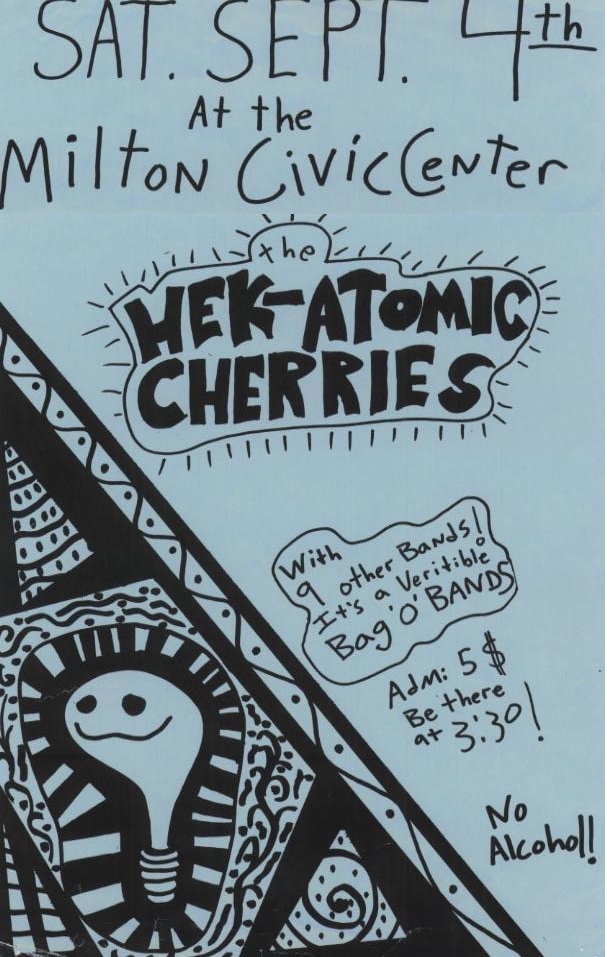 SAT. SEPT. 4th
At the
Milton Civic Center
the
HEK-ATOMIC
CHERRIES
With
9 other Bands!
It's a Veritible
Bag 'O' BANDS
Adm: 5 $
Be there
at 3:30!
No
Alcohol!